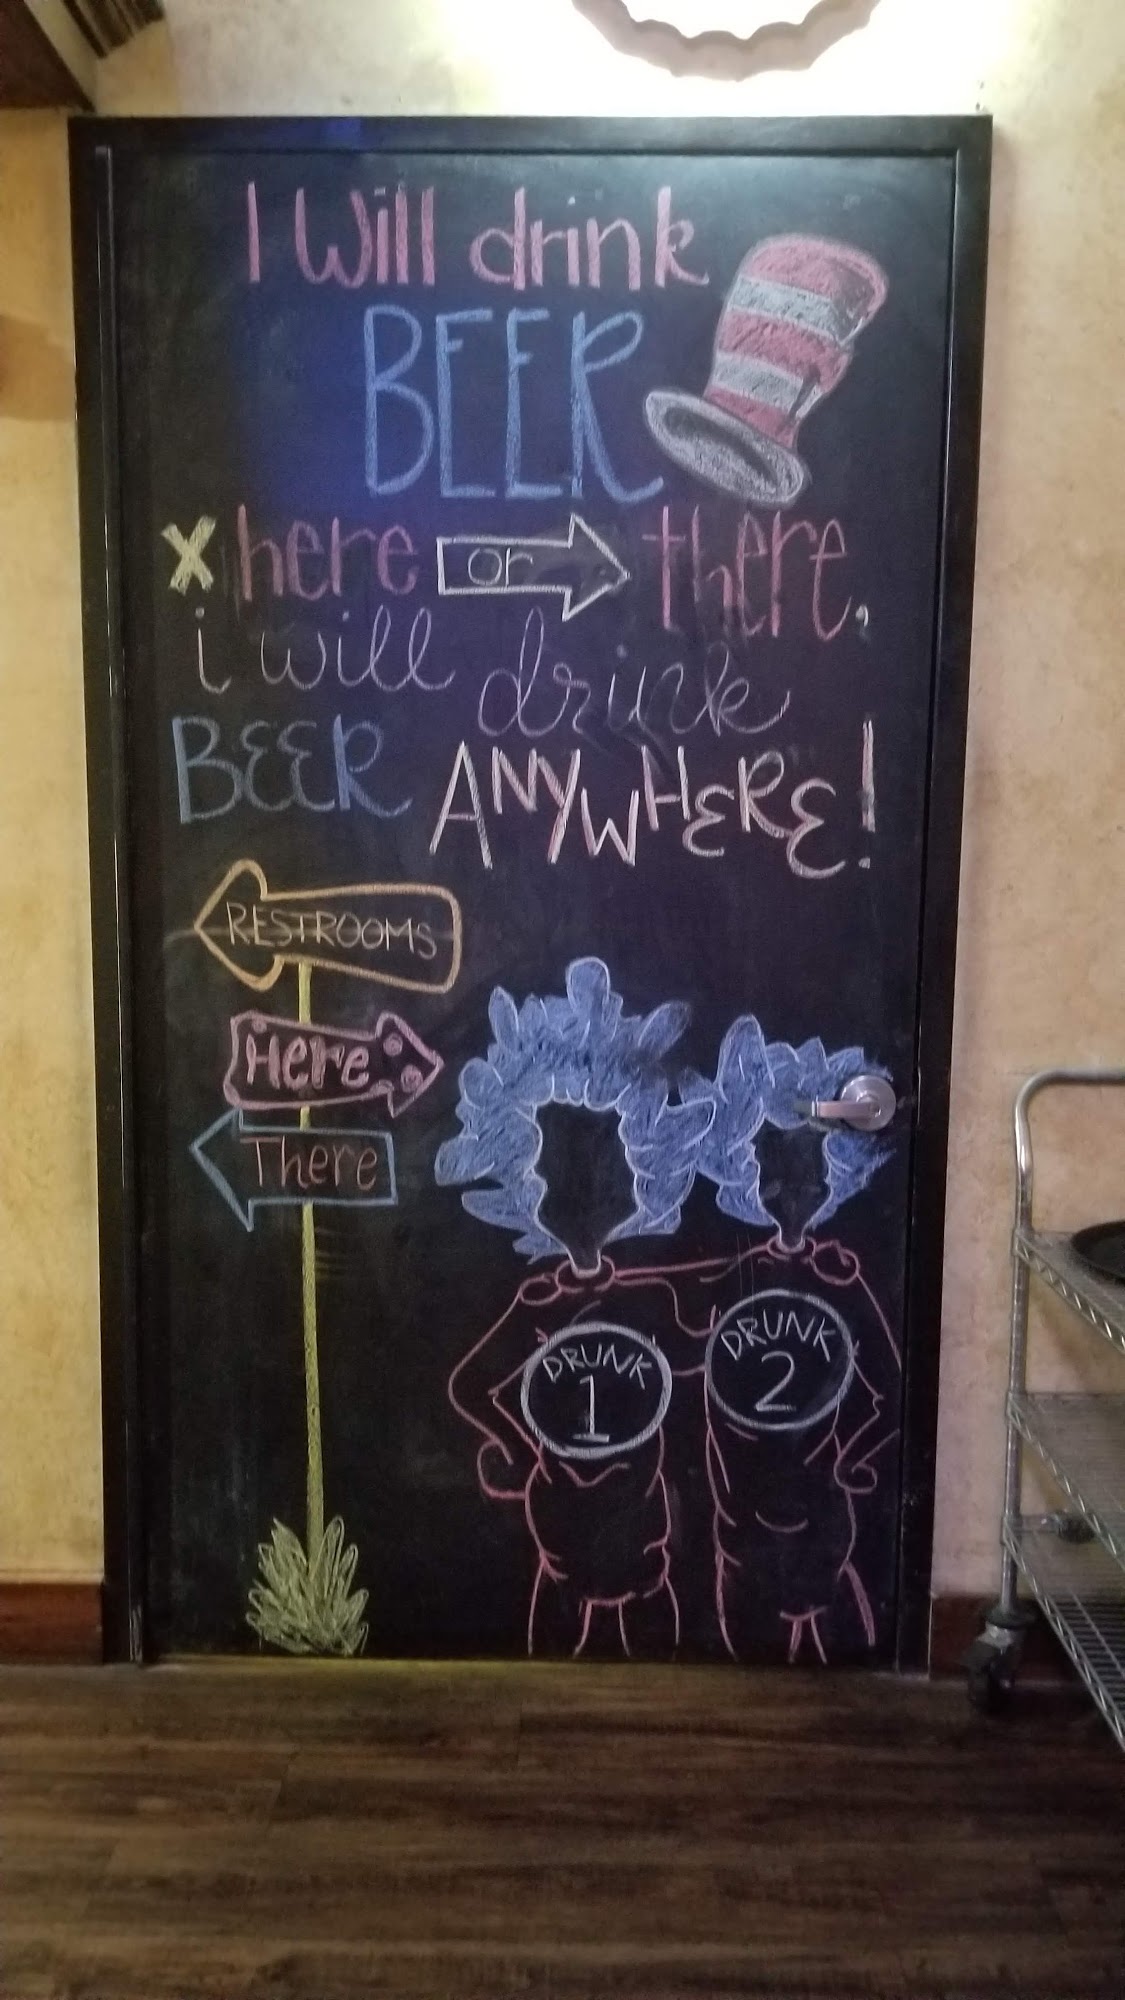 I Will drink
BEER
x here or there,
i will drink
BEER ANYWHERE!
RESTROOMS
Here
There
DRUNK
1
DRUNK
2